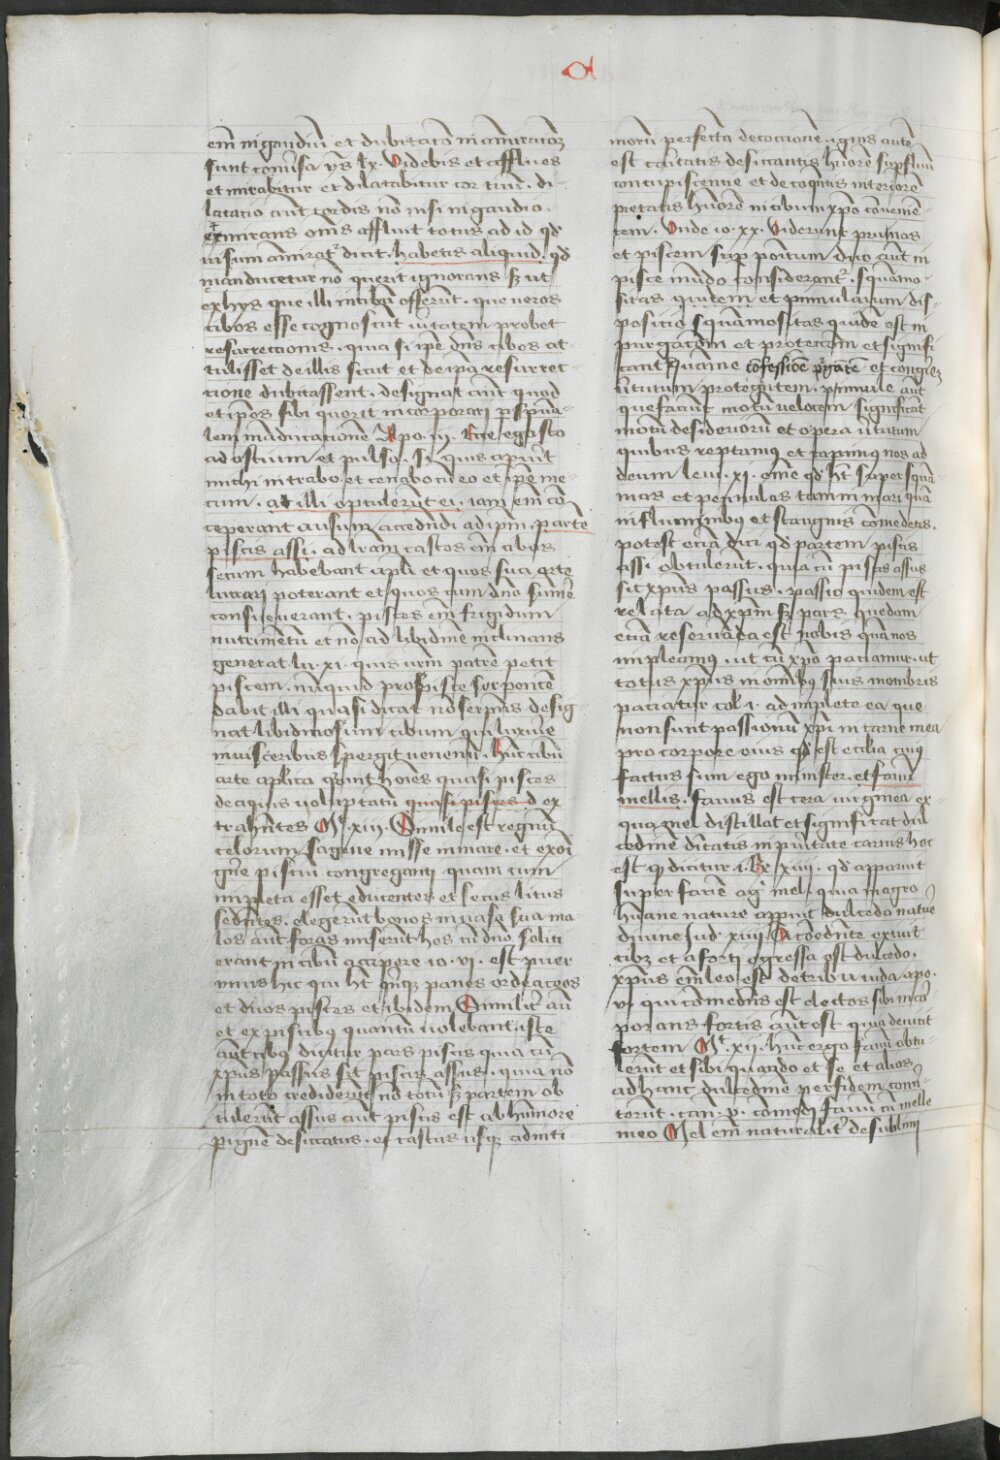 a
em̄ in gaudiū et dubitacō in am̄iracōȝ
sunt cōuersa ys lx. Videbis et afflues
et mirabitur et dilatabitur cor tuū. di-
latacio aūt cordis nō nisi in gaudio.
mirans om̄is affluit totus ad id qd̄
uisum am̄irat᷑ dicit. habetis aliquid. qd̄
manducetur nō querit ignorans sȝ ut
ex hys que illi in cibū offerūt. que ueros
cibos esse cognoscūt ūitatem probet
resurrectionis. quia si ip̄e dn̄s cibos at-
tulisset de illis sicut et de ip̄a resurrec-
tione dubitassent. designat aūt quod
et ip̄os sibi querit incorporari p sp̄ua-
lem māducationē Apo. iii. Ecce ego sto
ad ostium et pulso. si quis apuit
michi intrabo et cenabo cū eo et ip̄e me-
cum. at illi optulerūt ei. iam em̄ cō-
ceperant ausum accedendi ad ip̄m. partē
piscis assi. ad lram castos em̄ cibos
secum habebant apl̄i et quos sua arte
lucrari poterant et quos cum dn̄o sumē
consueuerant. pisces em̄ frigidum
nutrimētū et nō ad libidinē inclinans
generat lu. xi. quis ur̄m patrē petit
piscem. nūquid pro pisce serpentē
dabit illi quasi dicat nō serpēns desig-
nat libidinosum cibum qui luxurie
in uisceribus spergit uenenū. Hūc cibū
arte apl̄ica querūt hoīes quasi pisces
de aquis uoluptatū quasi pisces d ex
trahn̄tes Mt. xiii. Simile est regnū
celorum sagene misse in mare. et ex oī
gn̄e pisciū congreganti quam cum
impleta esset educentes et secus litus
sedn̄tes. elegerūt bonos in uasa sua ma-
los aūt foras miserūt hos cū dn̄o soliti
erant in cibū accipere io. vi. est puer
unus hic qui ht̄ qn̄qȝ panes ordeaceos
et duos pisces et ibidem Similit᷑ aūt
et ex piscibus quantū uolebant iste
aūt cibus dicitur pars piscis quia cū
xp̄us passus sit piscis assus. quia nō
in toto crediderūt nō totū sȝ partem ob-
tulerūt assus aūt piscis est ab humore
p ignē desiccatus. et castus usqȝ ad niti-
morū perfecta decoctione. ignis autē
est caritatis desiccantis hūorē supfluū
concupiscentie et decoqn̄tis interiorē
pietatis hūorē in cibum xp̄o conueniē-
tem. Unde io. xx. Viderunt prunas
et piscem suppositum duo aūt in
pisce mūdo considerant᷑. squamo-
sitas quidem et pinnularum dis-
positio squamositas quidē est in
purgacōm et protectōm et signifi-
cant squame cōfessionē p̄garē et congeriē
ūtutum protegētem. pinnule aūt
que faciūt motū uelocem significāt
motū desideriorū et opera ūtutum
quibus reptamꝰ et rapimꝰ nos ad
deum leui. xi. om̄e qd̄ ht̄ super squā-
mas et pennulas tam in mari quā
in fluminibus et stangnis cōmedetis.
potest eciā dici qd̄ partem piscis
assi obtulerūt. quia cū piscis assus
sit xp̄us passus. passio quidem est
relata ad xp̄m sȝ pars quedam
eciā reseruāda est nobis quā nos
impleamꝰ. ut cū xp̄o paciamur. ut
totus xp̄us in om̄ibꝰ suis membris
paciatur col. i. ad impleto ea que
non sunt passionū xp̄i in carne mea
pro corpore eius qd̄ est ecclia cuiꝰ
factus sum ego minister. et fauū
mellis. fauus est cera uirginea ex
qua mel distillat et significat dul-
cedinē dinitatis in puritate carnis hoc
est qd̄ dicitur i. Re. xiiii. qd̄ apparuit
super faciē agī mel. quia in agro
hūane nature appuit dulcedo nature
diuine Iud. xiiii. De comedēte exiuit
cibȝ et a forti egressa est dulcedo.
xp̄us em̄ leo est de tribu iuda apo.
v. qui comedēns est electos sibi incor-
porans fortis aūt est quia deuicit
fortem Mt. xii. hūc ergo fauū obtu-
lerūt et sibi quando et se et alios
ad hanc dulcedinē per fidem conū-
terūt. can. v. comedi fauū cū melle
meo Mel em̄ naturalit᷑ de sublimi